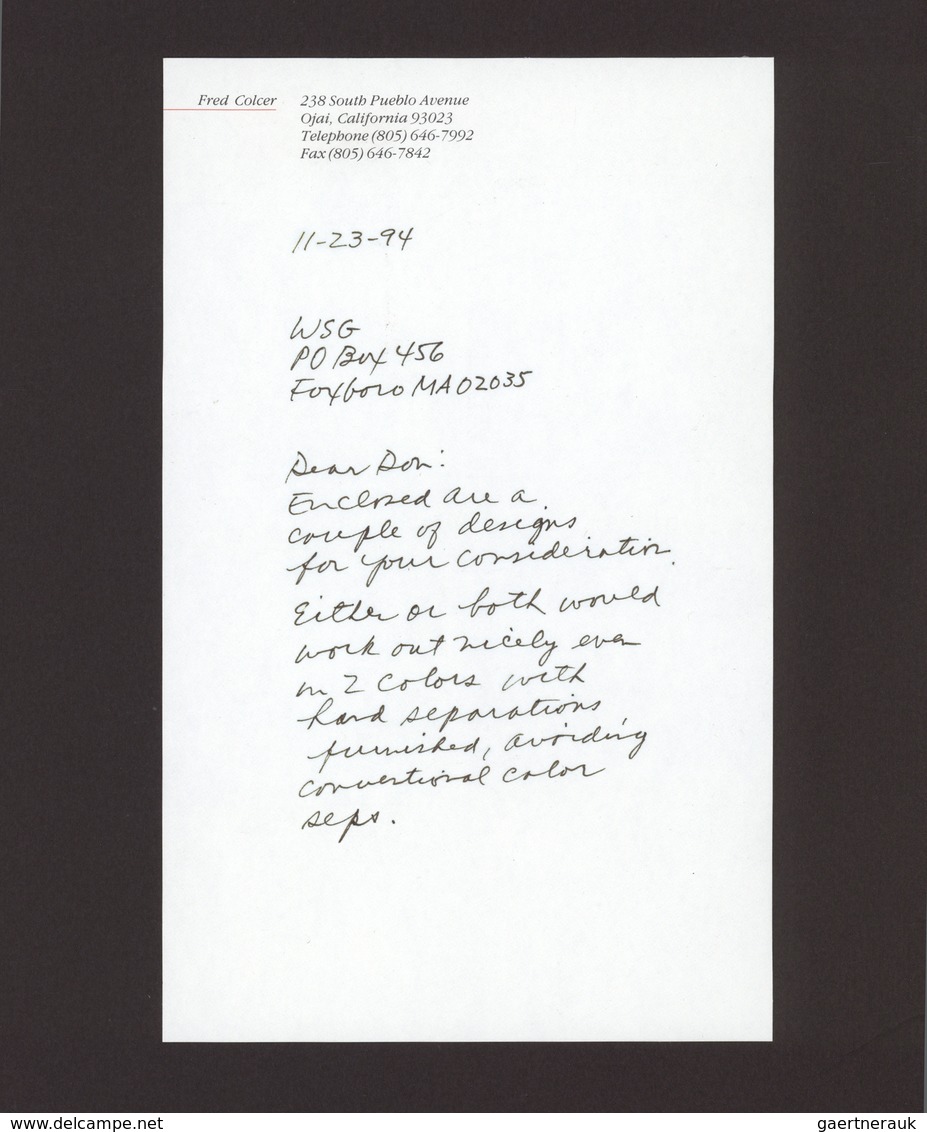 Fred Colcer
238 South Pueblo Avenue
Ojai, California 93023
Telephone (805) 646-7992
Fax (805) 646-7842
11-23-94
WSG
PO Box 456
Foxboro MA 02035
Dear Don:
Enclosed are a
couple of designs
for your consideration.
Either or both would
work out nicely even
in 2 colors with
hand separations
furnished, avoiding
conventional color
seps.
www.delcampe.net
gaertnerauk